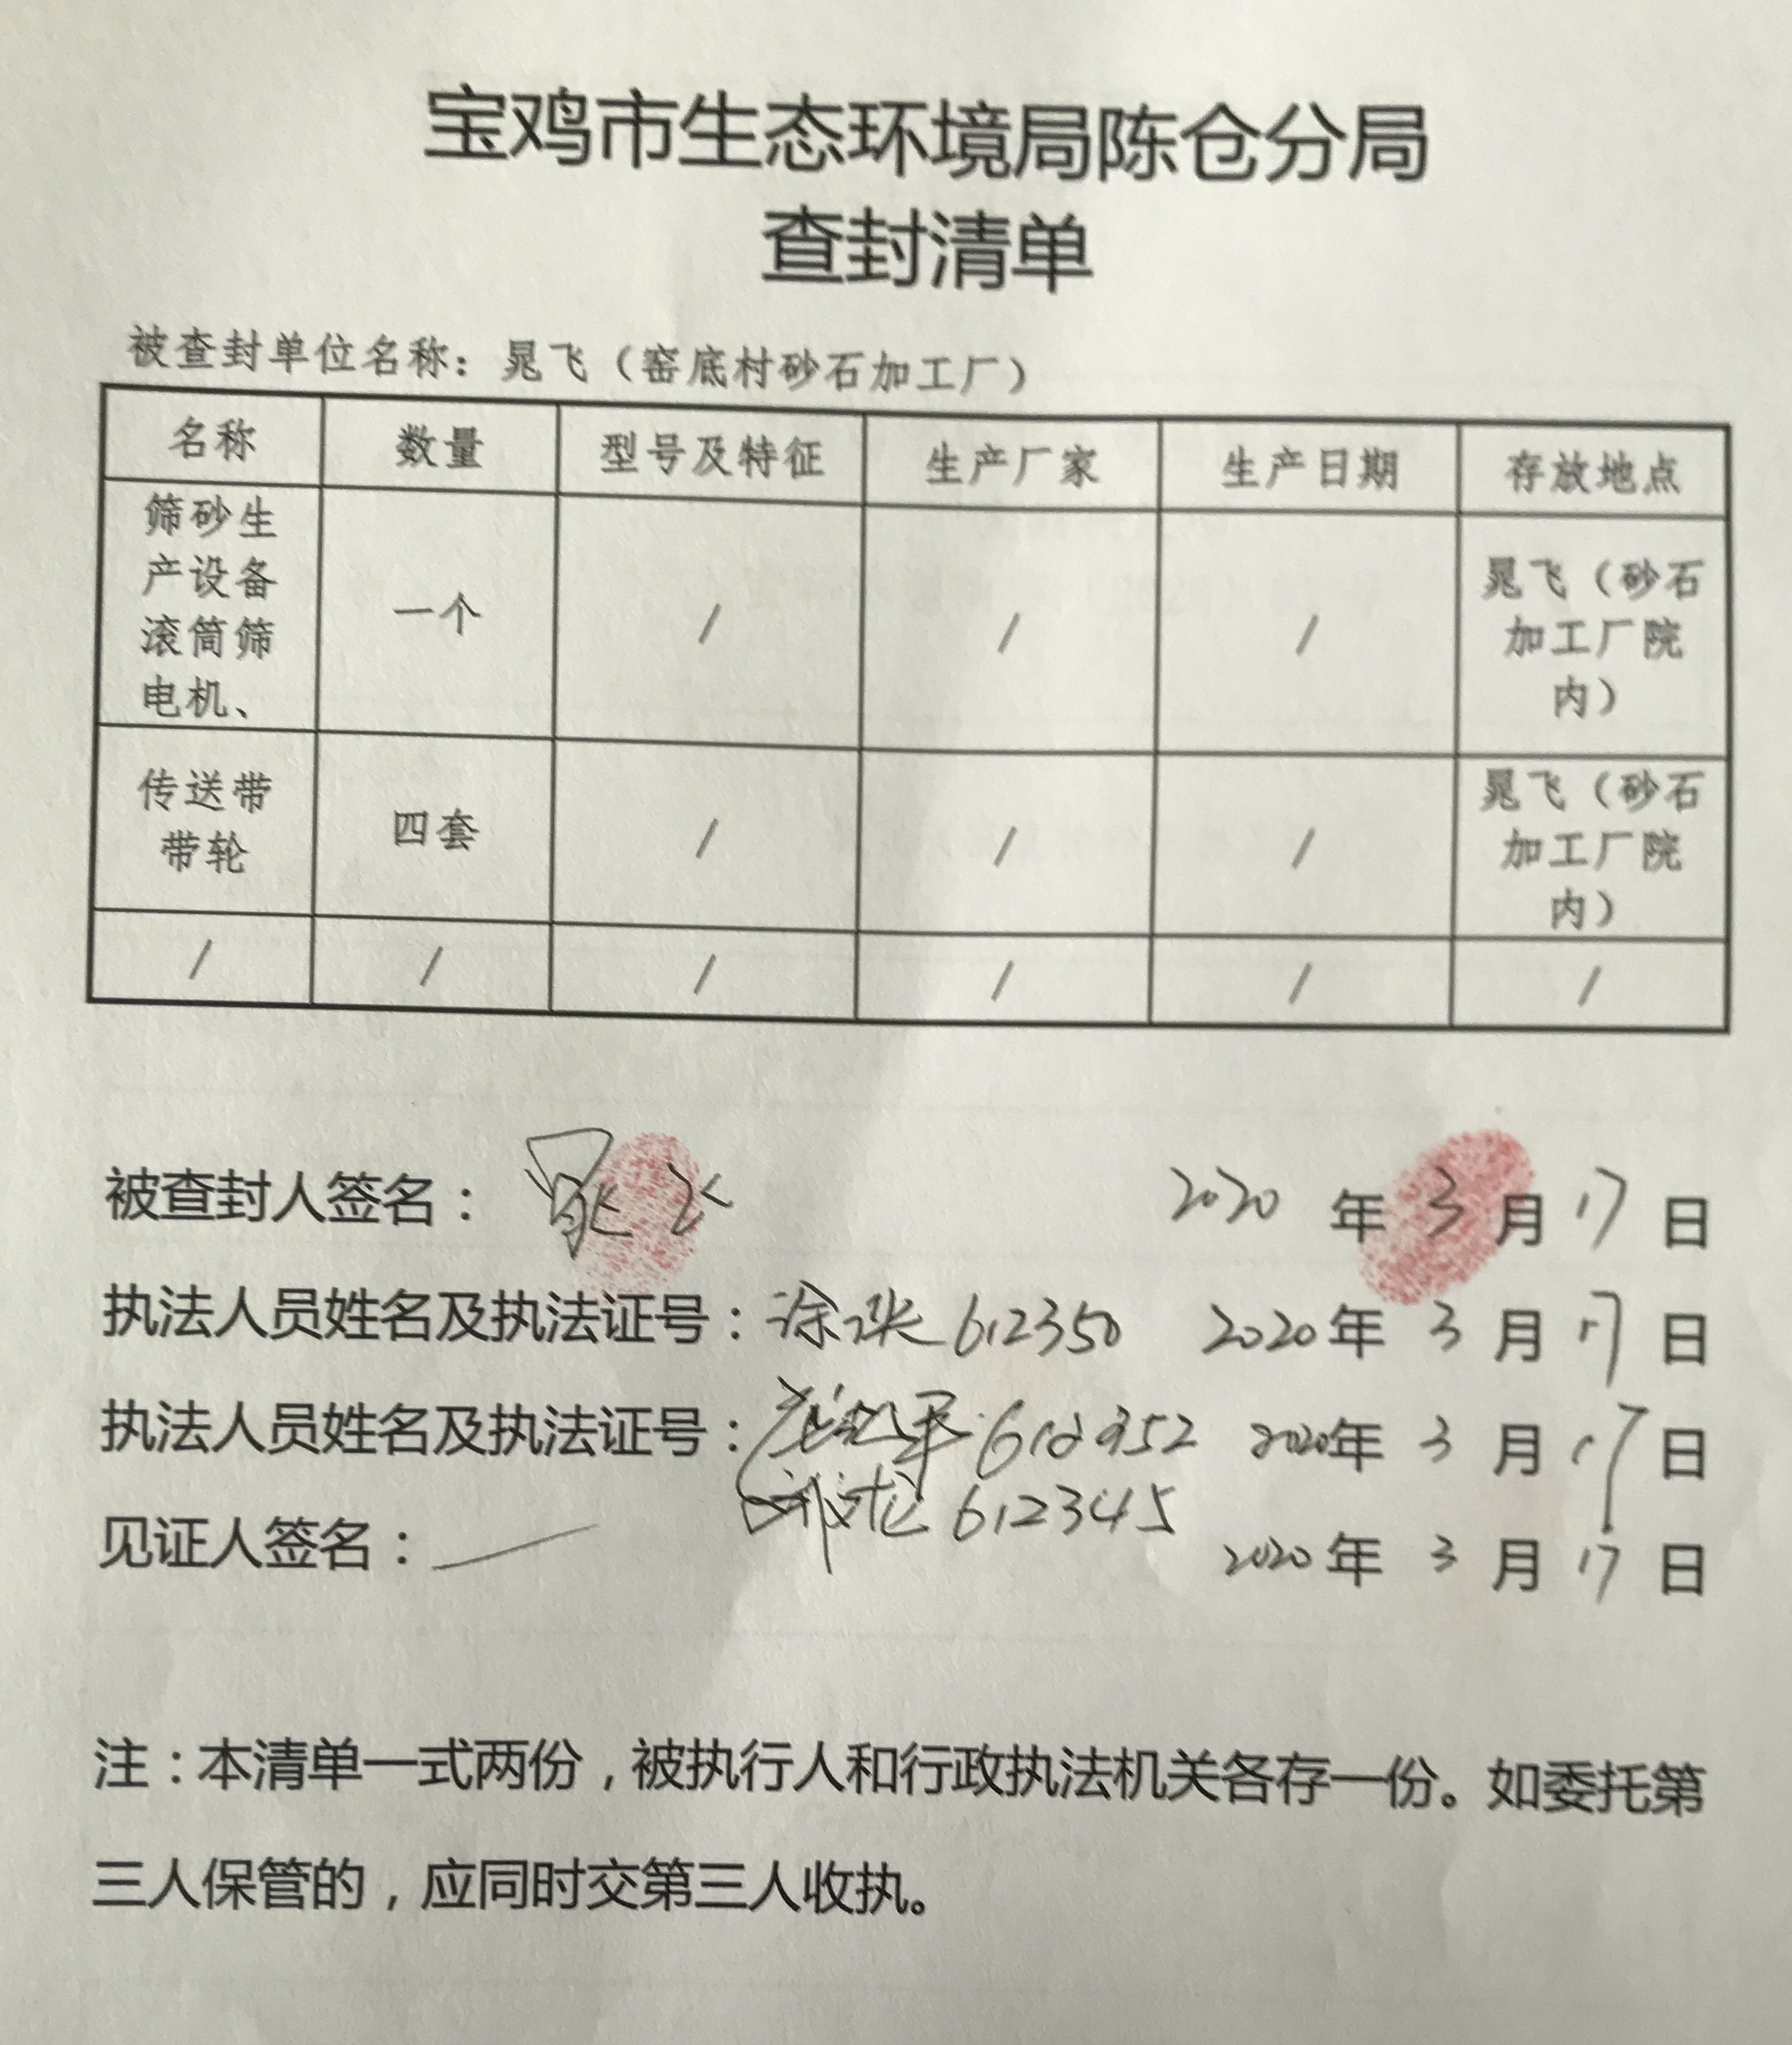 宝鸡市生态环境局陈仓分局
查封清单
被查封单位名称：晁飞（窑底村砂石加工厂）
名称 数量 型号及特征 生产厂家 生产日期 存放地点
筛砂生
产设备
滚筒筛
电机、
一个 / / /
晁飞（砂石
加工厂院
内）
传送带
带轮
四套 / / /
晁飞（砂石
加工厂院
内）
/ / / / / /
被查封人签名： 2020 年 3 月 17 日
执法人员姓名及执法证号： 612350 2020年 3 月 17 日
执法人员姓名及执法证号： 612352 2020年 3 月 17 日
612345
见证人签名： 2020年 3 月 17 日
注：本清单一式两份，被执行人和行政执法机关各存一份。如委托第
三人保管的，应同时交第三人收执。